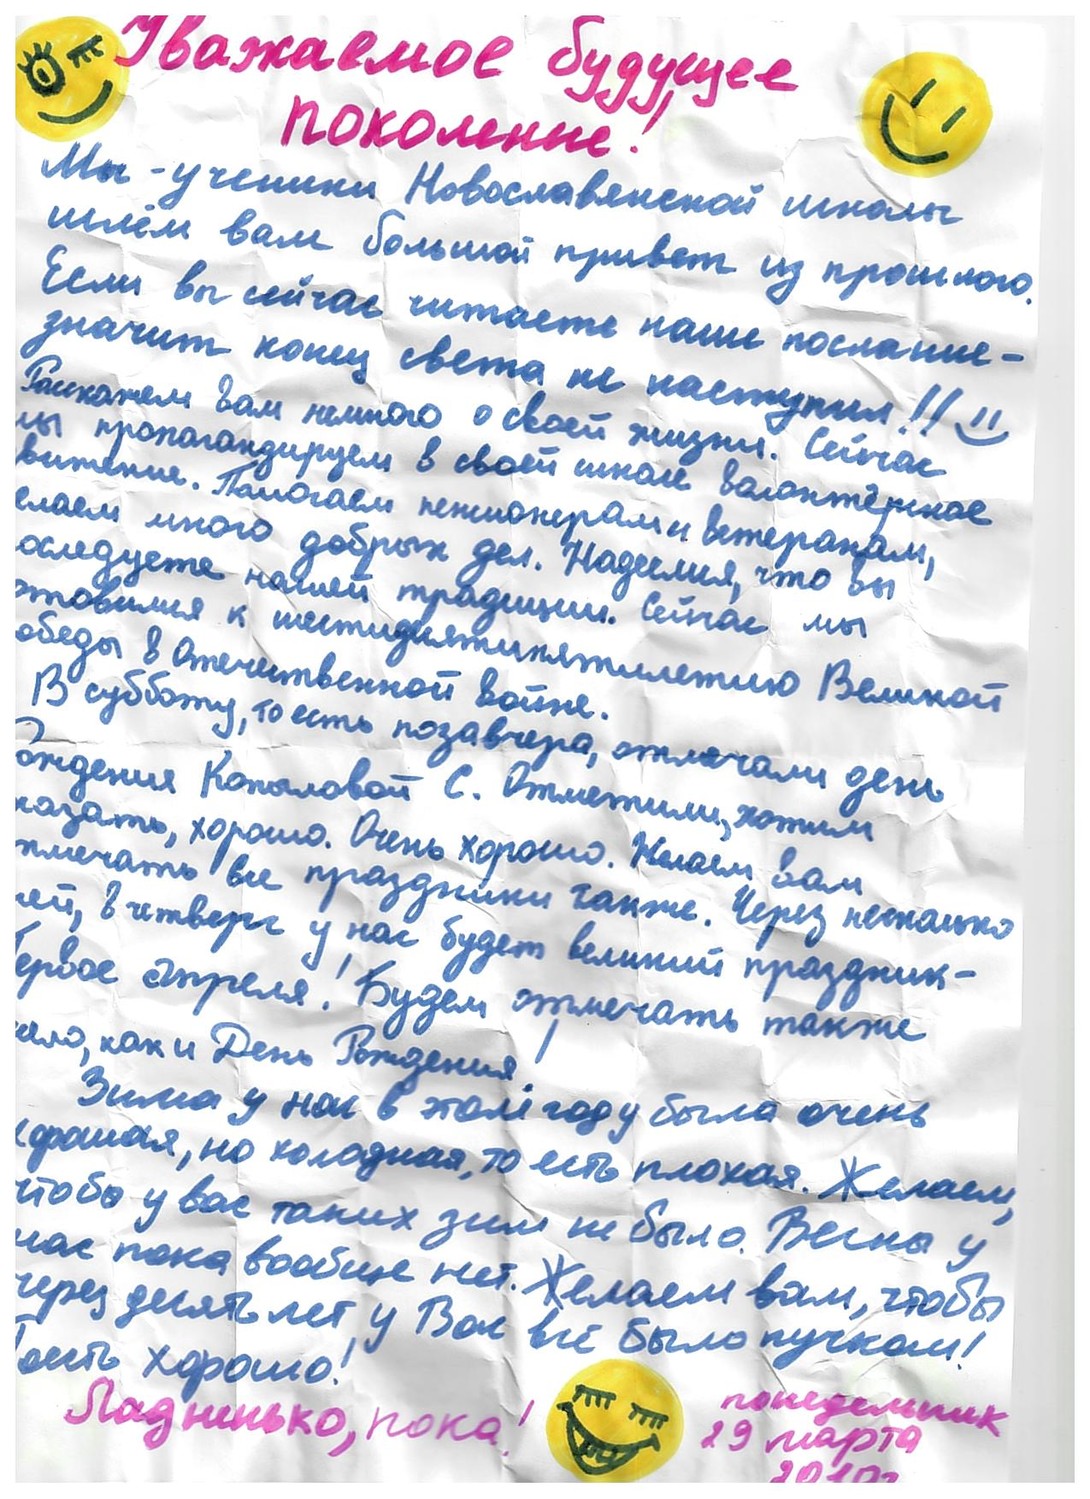 Уважаемое будущее
поколение!
Мы - ученики Новославянской школы
шлём вам большой привет из прошлого.
Если вы сейчас читаете наше послание -
значит конец света не наступил!!
Расскажем вам немного о своей жизни. Сейчас
мы пропагандируем в своей школе волонтёрское
вижение. Помогаем пенсионерам и ветеранам,
елаем много добрых дел. Надеемся, что вы
оследуете нашей традиции. Сейчас мы
отовимся к шестидесятипятилетию Великой
обеды в Отечественной войне.
В субботу, то есть позавчера, отмечали день
ождения Копыловой С. Отметили, хотим
казать, хорошо. Очень хорошо. Желаем вам
тмечать все праздники также. Через несколько
ней, в четверг у нас будет великий праздник -
ервое апреля! Будем отмечать также
ело, как и День Рождения!
Зима у нас в этом году была очень
хорошая, но холодная, то есть плохая. Желаем,
чтобы у вас таких зим не было. Весны у
нас пока вообще нет. Желаем вам, чтобы
через десять лет у Вас всё было пучком!
Тоесть хорошо!
Ладненько, пока!
понедельник
29 марта
2010г